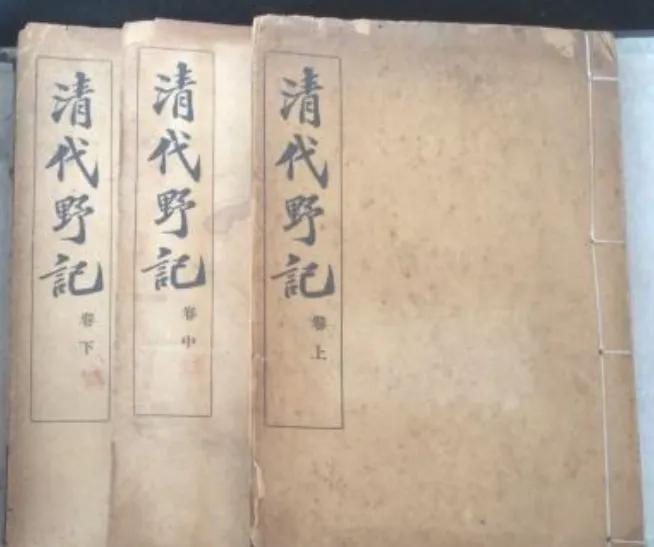 清代野記
卷上
清代野記
卷中
清代野記
卷下